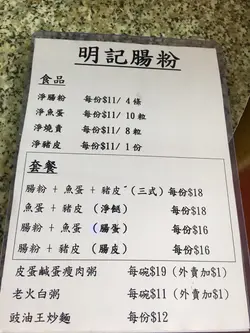 明記腸粉
食品
淨腸粉 每份$11/ 4 條
淨魚蛋 每份$11/ 10 粒
淨燒賣 每份$11/ 8 粒
淨豬皮 每份$11/ 1 份
套餐
腸粉 + 魚蛋 + 豬皮 (三式) 每份$18
魚蛋 + 豬皮 (淨餸) 每份$18
腸粉 + 魚蛋 (腸蛋) 每份$16
腸粉 + 豬皮 (腸皮) 每份$16
皮蛋鹹蛋瘦肉粥 每碗$19 (外賣加$1)
老火白粥 每碗$11 (外賣加$1)
豉油王炒麵 每份$12